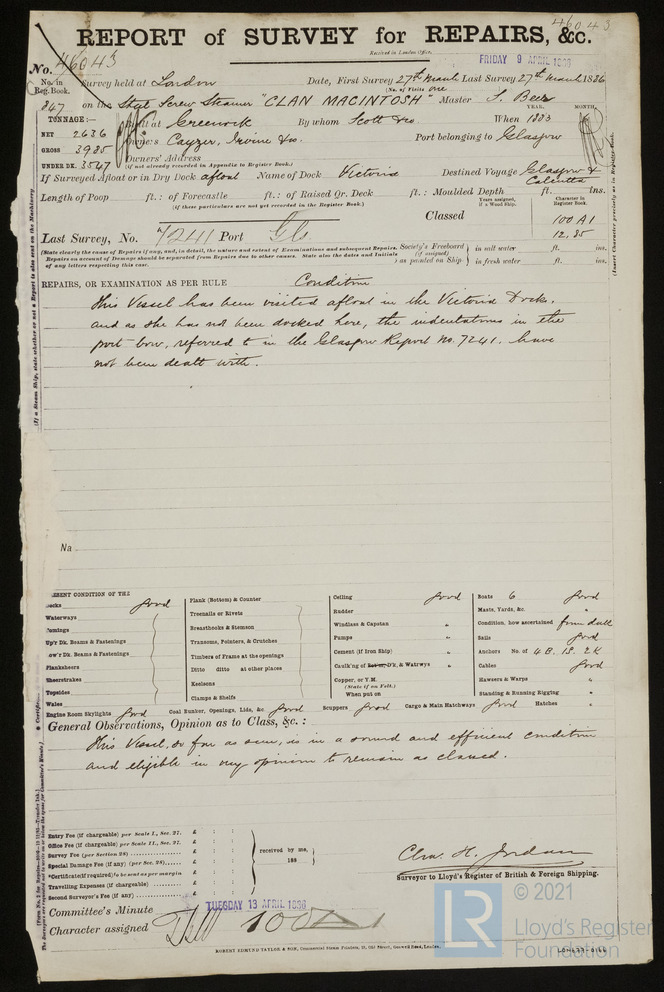 46043
REPORT of SURVEY for REPAIRS, &c.
Received in London Office,
FRIDAY 9 APRIL 1886
No. 46043
No. in Reg. Book. Survey held at London Date, First Survey 27th March Last Survey 27th March 1886
(No. of Visits one
847 on the Steel Screw Steamer "CLAN MACINTOSH" Master J. Beer
TONNAGE:— Built at Greenock By whom Scott & Co When 1883
YEAR. MONTH.
NET 2636
GROSS 3985 Owners Cayzer, Irvine & Co. Port belonging to Glasgow
UNDER DK. 3547 Owners' Address
(if not already recorded in Appendix to Register Book.)
If Surveyed Afloat or in Dry Dock afloat Name of Dock Victoria Destined Voyage Glasgow & Calcutta
Length of Poop ft.: of Forecastle ft.: of Raised Qr. Deck ft.: Moulded Depth ft. ins.
(if these particulars are not yet recorded in the Register Book.)
Classed
Years assigned, if a Wood Ship.
Character in Register Book.
100 A1
12.85
Last Survey, No. 7241 Port Gls
(State clearly the cause of Repairs if any, and, in detail, the nature and extent of Examinations and subsequent Repairs.
Repairs on account of Damage should be separated from Repairs due to other causes. State also the dates and Initials
of any letters respecting this case.
Society's Freeboard (if assigned) as painted on Ship } in salt water ft. ins.
in fresh water ft. ins.
REPAIRS, OR EXAMINATION AS PER RULE Condition
This Vessel has been visited afloat in the Victoria Dock.
and as she has not been docked here, the indentations in the
port bow, referred to in the Glasgow Report No. 7241. have
not been dealt with.
Na
PRESENT CONDITION OF THE
Decks good
Waterways
Coamings
Up'r Dk. Beams & Fastenings
Low'r Dk. Beams & Fastenings
Planksheers
Sheerstrakes
Topsides
Wales
Engine Room Skylights good
Plank (Bottom) & Counter
Treenails or Rivets
Breasthooks & Stemson
Transoms, Pointers, & Crutches
Timbers of Frame at the openings
Ditto ditto at other places
Keelsons
Clamps & Shelfs
Coal Bunker, Openings, Lids, &c. good
Ceiling good
Rudder
Windlass & Capstan "
Pumps "
Cement (if Iron Ship) "
Caulk'ng of D'k, & Watrwys "
Copper, or Y.M.
(State if on Felt.)
When put on
Scuppers good
Cargo & Main Hatchways good
Boats 6 good
Masts, Yards, &c. "
Condition, how ascertained from deck
Sails good
Anchors No. of 4B. 1S. 2K
Cables good
Hawsers & Warps "
Standing & Running Rigging "
Hatches "
General Observations, Opinion as to Class, &c. :
This Vessel, so far as seen, is in a sound and efficient condition
and eligible in my opinion to remain as classed.
Entry Fee (if chargeable) per Scale I., Sec. 27. £ : :
Office Fee (if chargeable) per Scale II., Sec. 27. £ : :
Survey Fee (per Section 28) £ : :
Special Damage Fee (if any) (per Sec. 28) £ : :
Certificate (if required) to be sent as per margin £ : :
Travelling Expenses (if chargeable) £ : :
Second Surveyor's Fee (if any) £ : :
received by me,
188
Chas. H. Jordan
Surveyor to Lloyd's Register of British & Foreign Shipping.
Committee's Minute TUESDAY 13 APRIL 1886
Character assigned 100 A1
ROBERT EDMUND TAYLOR & SON,
LR © 2021
Lloyd's Register
Foundation